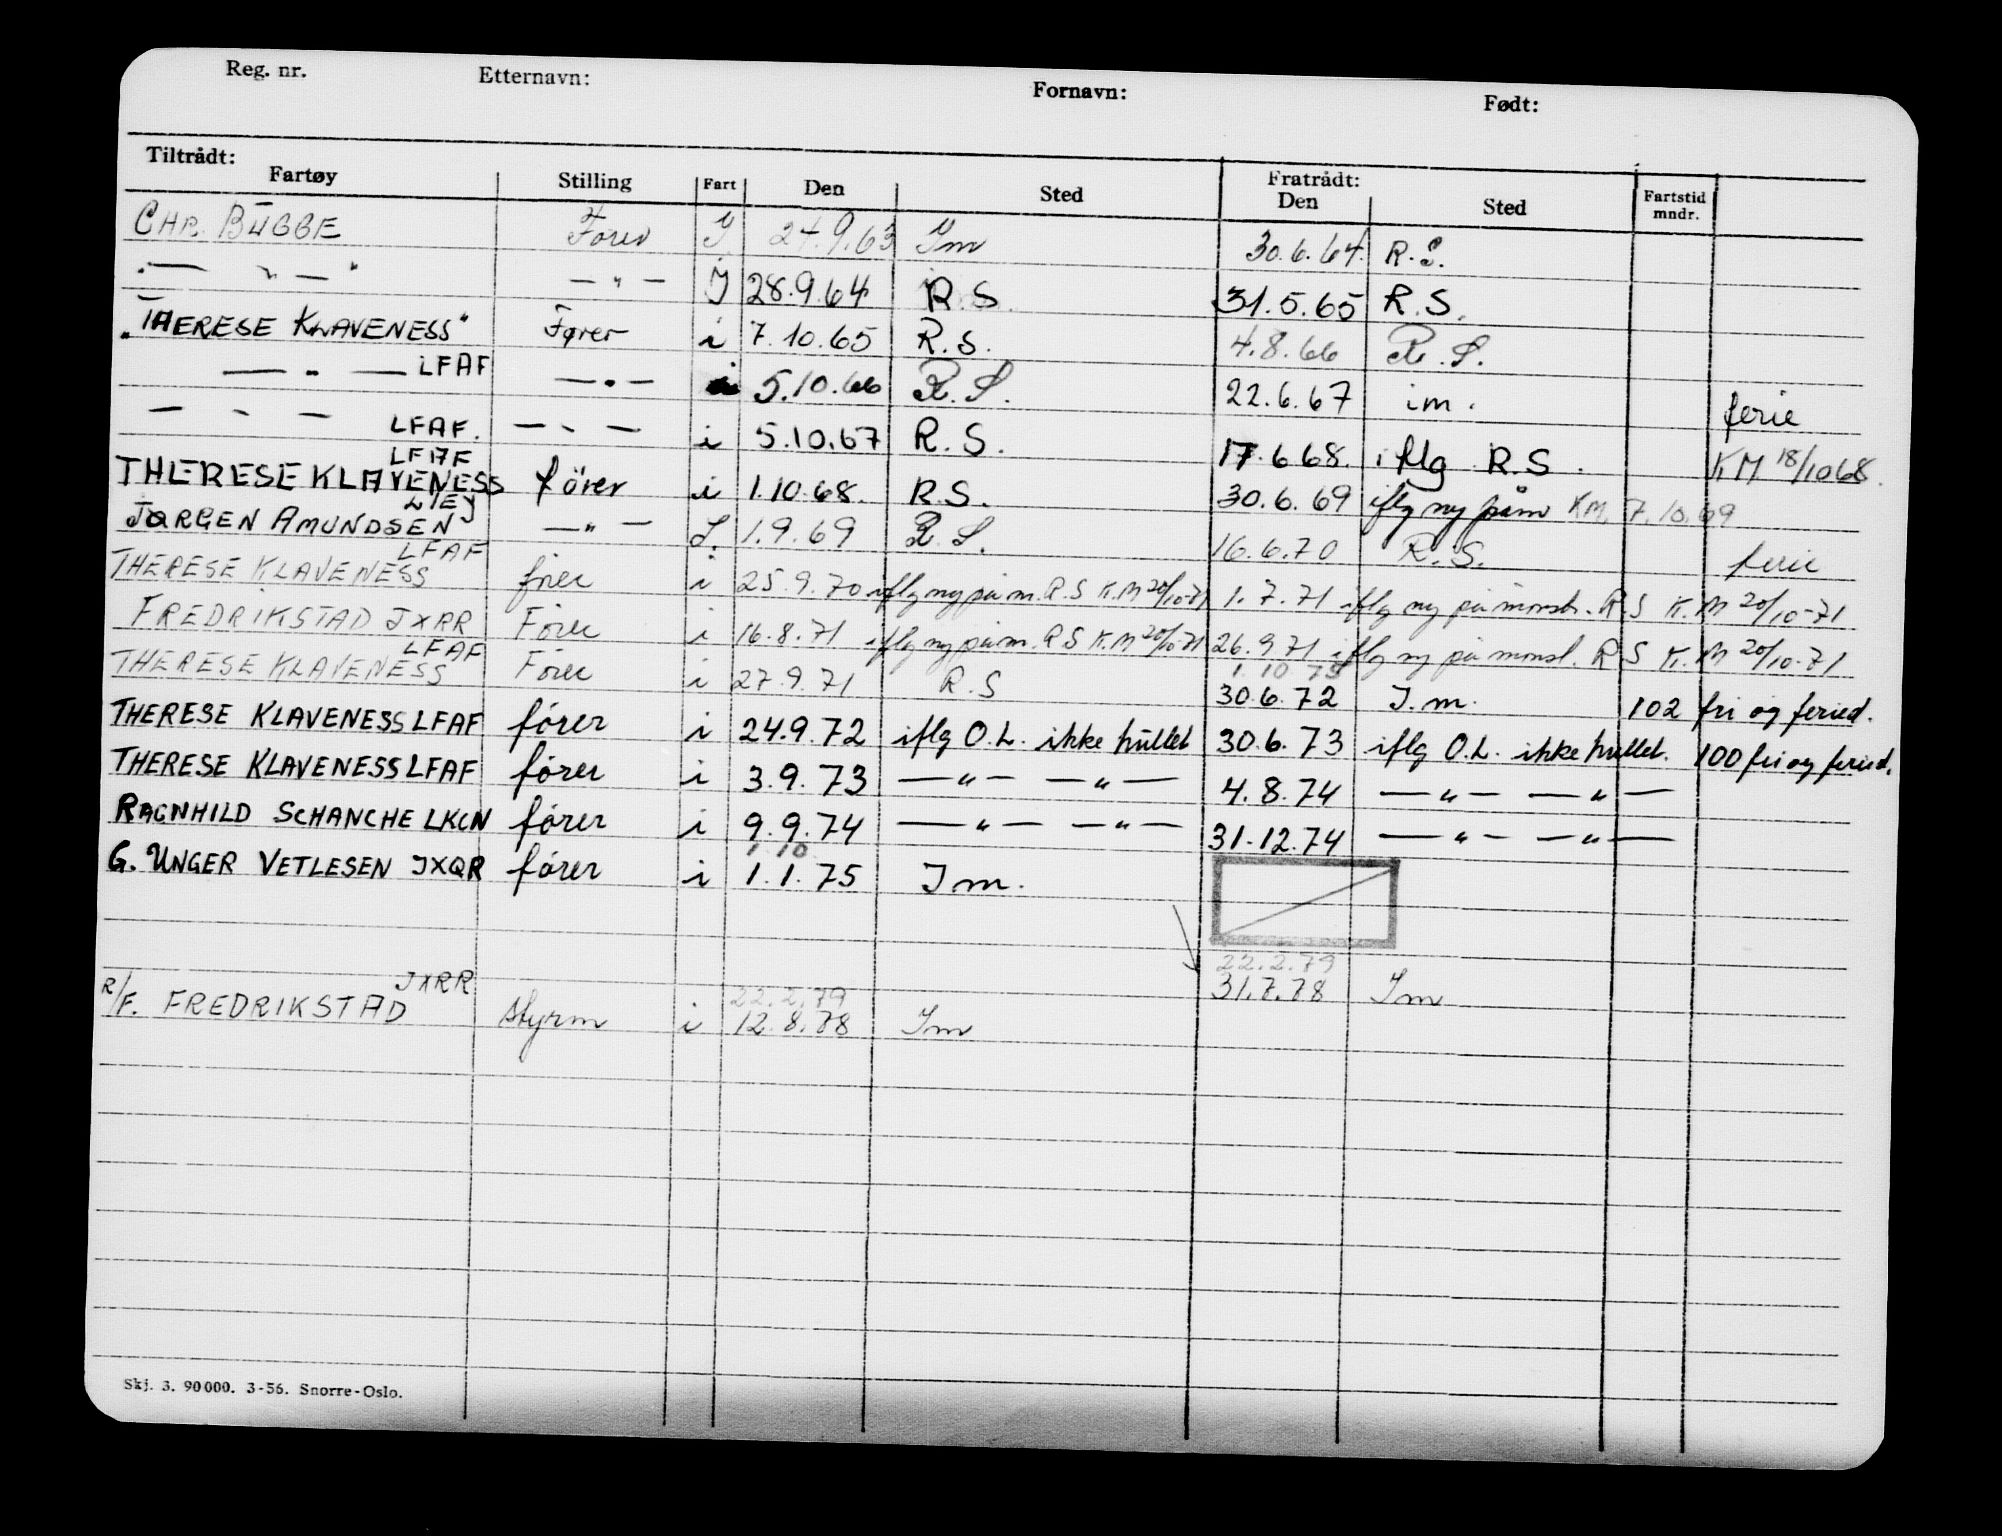 Reg. nr. Etternavn: Fornavn: Født:
Tiltrådt: Fratrådt:
Fartøy Stilling Fart Den Sted Den Sted Fartstid mndr.
CHR. BUGGE Fører I 24.9.63 Im 30.6.64. R.S.
— " — — " — I 28.9.64 R.S. 31.5.65 R.S.
"THERESE KLAVENESS" Fører i 7.10.65 R.S. 4.8.66 R.S.
— " — LFAF — " — i 5.10.66 R.S. 22.6.67 im. ferie
— " — LFAF. — " — i 5.10.67 R.S. 17.6.68. iflg R.S. KM 18/10 68.
LFAF
THERESE KLAVENESS förer i 1.10.68. R.S. 30.6.69 iflg ny påm KM. 7.10.69
JØRGEN AMUNDSEN — " — 1.9.69 R.S. 16.6.70 R.S. ferie
LFAF
THERESE KLAVENESS fører i 25.9.70 iflg ny påm. R.S K.M 20/10-71 1.7.71 iflg ny påmønst. R.S K.M 20/10-71
FREDRIKSTAD JXRR Fører i 16.8.71 iflg ny påm. R S K.M 20/10-71 26.9.71 iflg ny påmønst. R S K.M 20/10-71
LFAF 1.10.75
THERESE KLAVENESS Fører i 27.9.71 R.S 30.6.72 I.m. 102 fri og feried.
THERESE KLAVENESS LFAF fører i 24.9.72 iflg O.L. ikke hullet 30.6.73 iflg O.L. ikke hullet. 100 fri og feried.
THERESE KLAVENESS LFAF fører i 3.9.73 — " — — " — 4.8.74 — " — — " —
RAGNHILD SCHANCHE LKCN fører i 9.9.74 — " — — " — 31.12.74 — " — — " —
1.10
G. UNGER VETLESEN JXQR fører i 1.1.75 Im.
22.2.79
31.7.78 Im
JXRR 22.2.79
R/F. FREDRIKSTAD styrm i 12.8.78 Im
Skj. 3. 90000. 3-56. Snorre-Oslo.